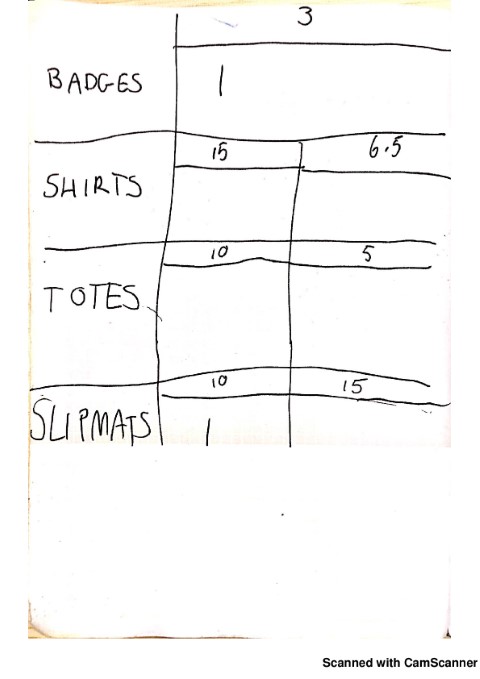 3
BADGES |
15 6.5
SHIRTS
10 5
TOTES
10 15
SLIPMATS |
Scanned with CamScanner